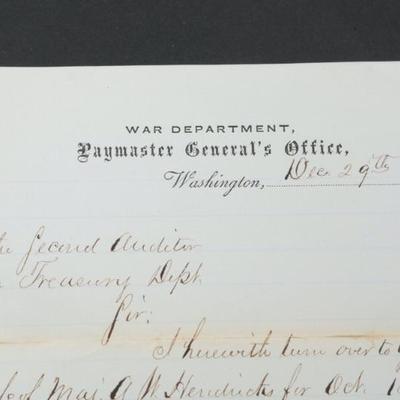 WAR DEPARTMENT,
Paymaster General's Office,
Washington, Dec 29th
Second Auditor
Treasury Dept
Sir:
I herewith turn over to
of Maj. A W. Hendricks for Oct.